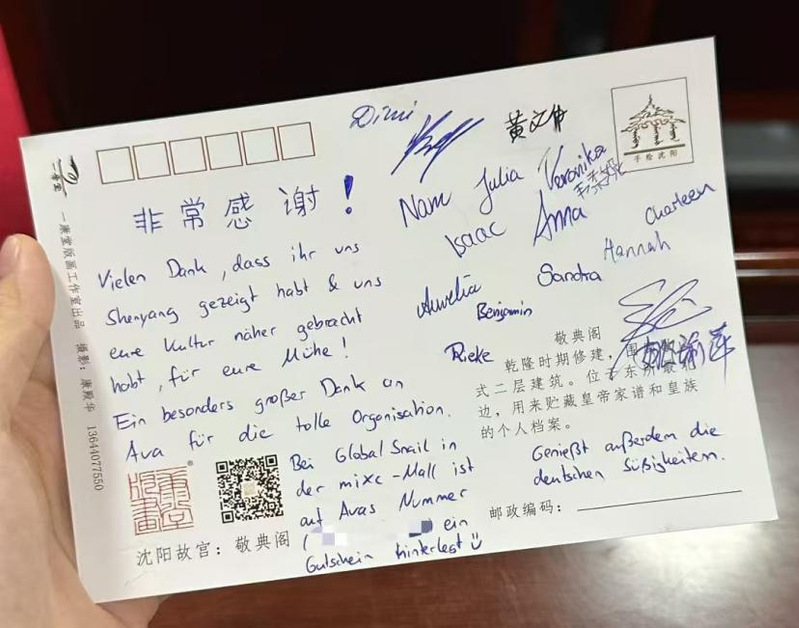 Dimi
黄文
手绘沈阳
非常感谢!
Nam Julia Veronika
Isaac Anna Charleen
Hannah
Aurelia Sandra
Benjamin
Rieke
Vielen Dank, dass ihr uns
Shenyang gezeigt habt & uns
eure Kultur näher gebracht
habt, für eure Mühe!
Ein besonders großer Dank an
Ava für die tolle Organisation.
Bei Global Snail in
der mixc-Mall ist
auf Avas Nummer
( ein
Gutschein hinterlegt
敬典阁
乾隆时期修建,
式二层建筑。位
边,用来贮藏皇帝家谱和皇族
的个人档案。
Genießt außerdem die
deutschen Süßigkeiten.
邮政编码:
沈阳故宫:敬典阁
一康堂版画工作室出品 摄影:康殿华 13644077550